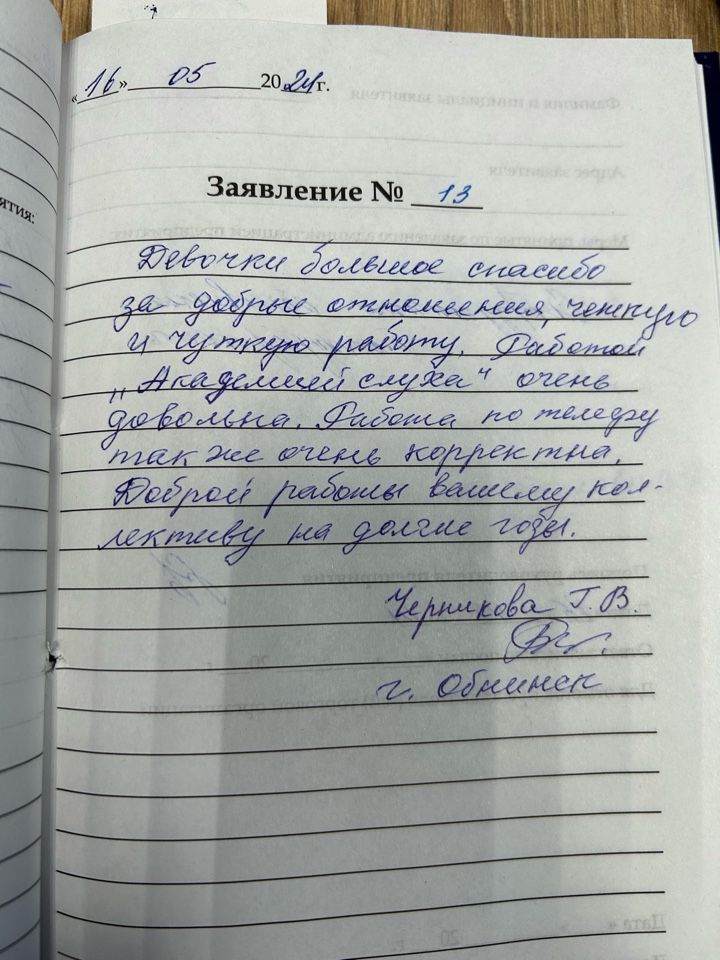 «16» 05 2024г.
ятия:
Заявление № 13
Девочки большое спасибо
за добрые отношения, четкую
и чуткую работу. Работой
„Академией слуха" очень
довольна. Работа по телефу
так же очень корректна.
Доброй работы вашему кол-
лективу на долгие годы.
Черникова Г.В.
г. Обнинск